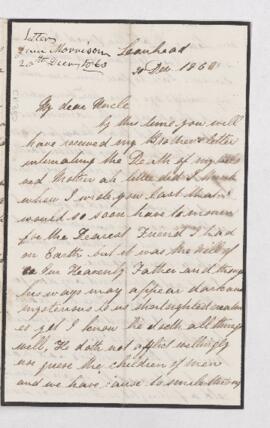 Letter
Morrison
20th Decr 1860
Leanhead
Dec 1860
My dear Uncle
by this time you will
have received my Brothers letter
intimating the Death of my
Mother ah little did I think
when I wrote you last that I
would so soon have to mourn
for the Dearest Friend I had
on Earth but it was the will of
our Heavenly Father and though
his ways may appear dark and
mysterious to us shortsighted creatures
yet I know He doeth all things
well, He doth not afflict willingly
nor grieve the children of men
and we have cause to